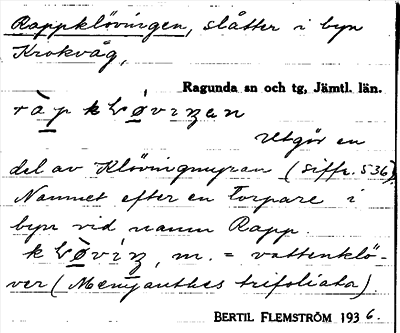 Rappklövingen, slåtter i byn
Krokvåg,
Ragunda sn och tg, Jämtl. län.
Utgör en
del av Klövingmyran (siffr. 536).
Namnet efter en torpare i
byn vid namn Rapp.
m. = vattenklö-
ver (Menyanthes trifoliata)
BERTIL FLEMSTRÖM 1936.